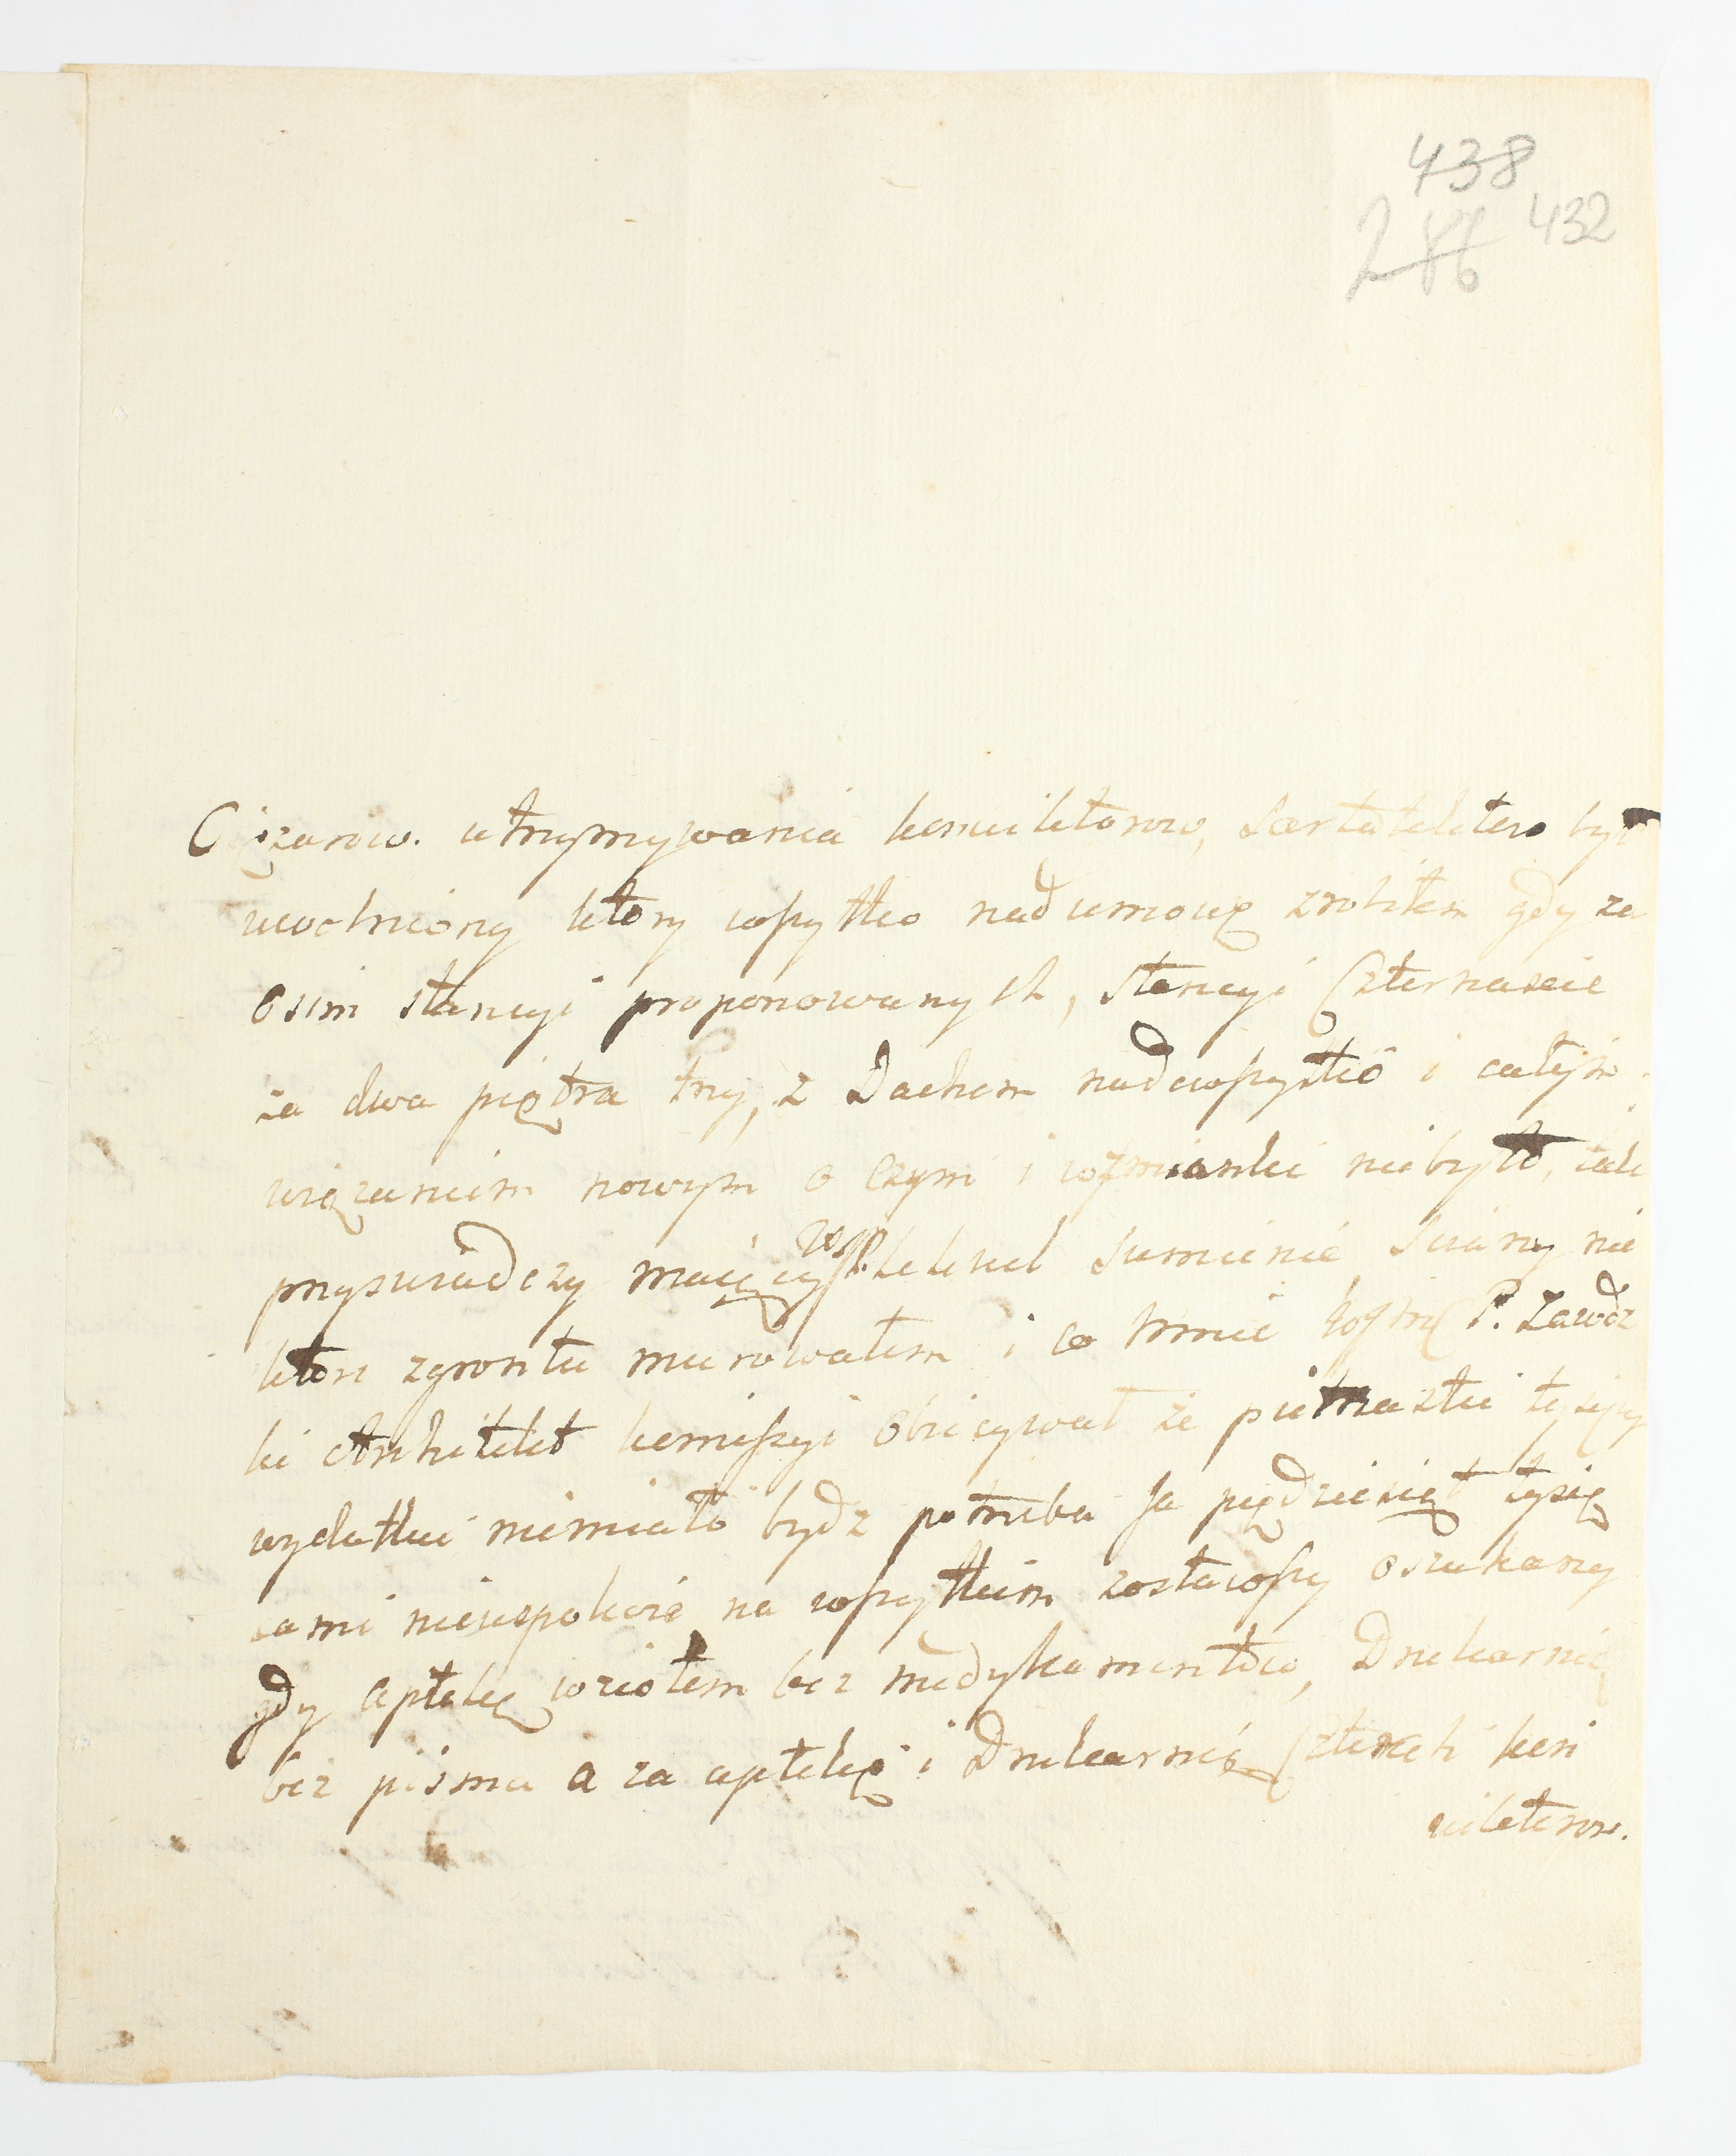 438
286 432
Ciężarow. utrzymywania konwiktorow, Sartatektow był
uwolniony ktory wszytko nad umowę zrobiłem gdy za
osim stancyi proponowanych, Stancyi Czternascie
za dwa piętra trzy, z Dachem nadewszytko i całym
wiązaniem nowym o czym i wzmianki niebyło, iak
przyswiadczy maiący WJP. Rektor Sumienie Sciany nie
ktore zgrontu murowałem i co mnie P. Zawadz
ki Arhitekt komissyi obiecywał że pietnastu tysięcy
wydatku niemiało bydz potrzeba Ja piędziesiąt tysię
cami nieuspokoię na wszytkim zostawszy oszukany
gdy aptekę wziołem bez medykamentow, Drukarnię
bez pisma a za aptekę i Drukarnię Czterech kon
wiktorow.